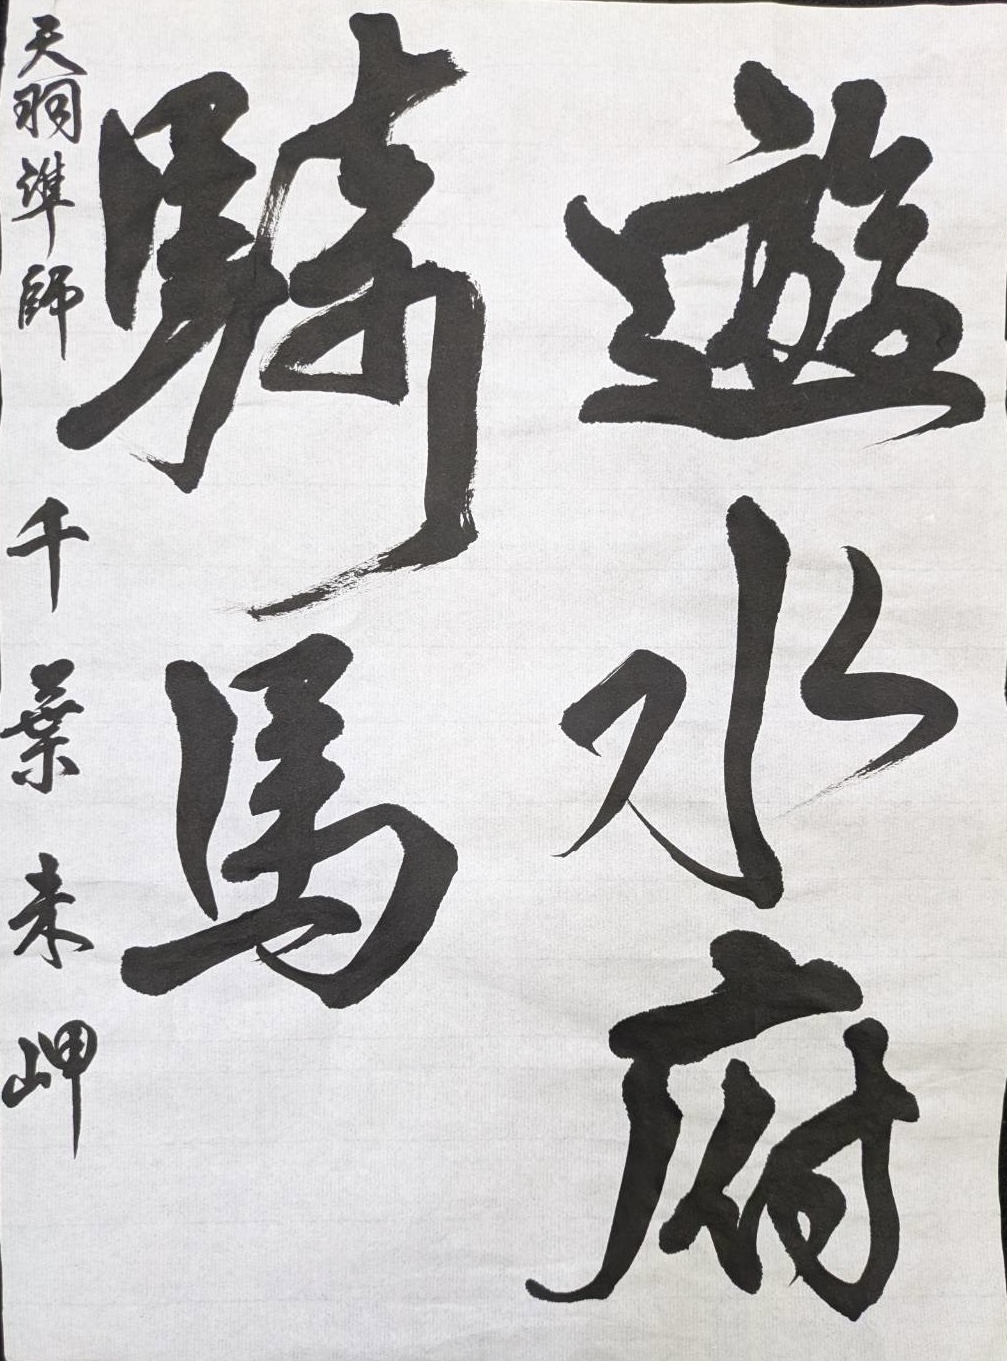 遊水府
騎馬
天羽準師 千葉未岬